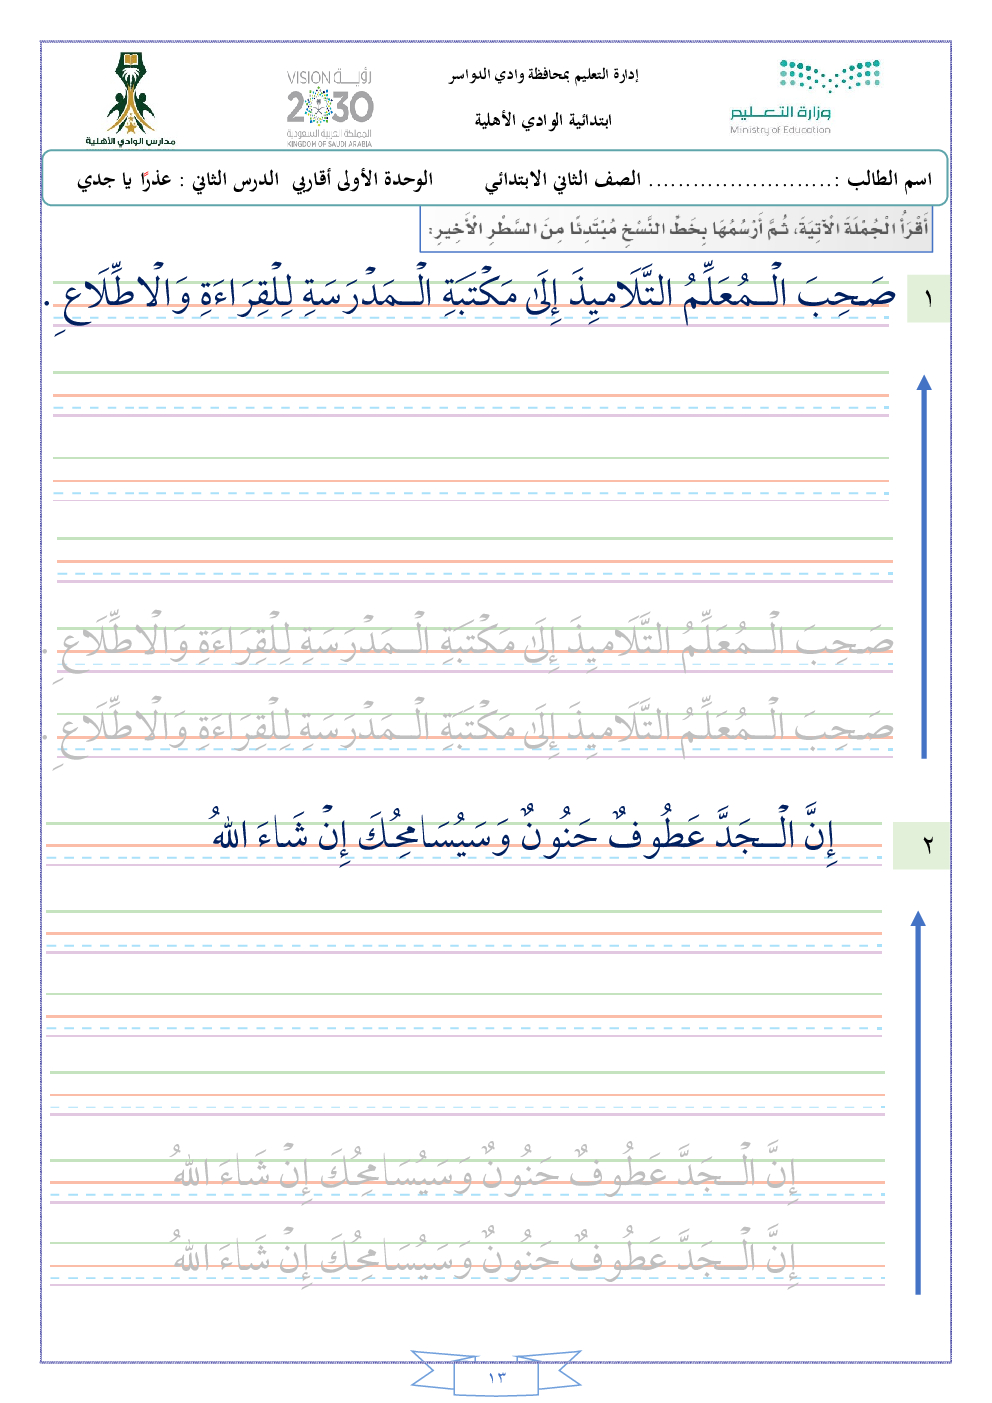 وزارة التعليم
Ministry of Education
إدارة التعليم بمحافظة وادي الدواسر
ابتدائية الوادي الأهلية
VISION رؤيــة
2030
المملكة العربية السعودية
KINGDOM OF SAUDI ARABIA
مدارس الوادي الأهلية
اسم الطالب :......................... الصف الثاني الابتدائي الوحدة الأولى أقاربي الدرس الثاني : عذرًا يا جدي
أَقْرَأُ الْجُمْلَةَ الْآتِيَةَ، ثُمَّ أَرْسُمُهَا بِخَطِّ النَّسْخِ مُبْتَدِئًا مِنَ السَّطْرِ الْأَخِيرِ:
١
صَحِبَ الْـمُعَلِّمُ التَّلَامِيذَ إِلَىٰ مَكْتَبَةِ الْـمَدْرَسَةِ لِلْقِرَاءَةِ وَالْاطِّلَاعِ .
صَحِبَ الْـمُعَلِّمُ التَّلَامِيذَ إِلَىٰ مَكْتَبَةِ الْـمَدْرَسَةِ لِلْقِرَاءَةِ وَالْاطِّلَاعِ .
صَحِبَ الْـمُعَلِّمُ التَّلَامِيذَ إِلَىٰ مَكْتَبَةِ الْـمَدْرَسَةِ لِلْقِرَاءَةِ وَالْاطِّلَاعِ .
٢
إِنَّ الْـجَدَّ عَطُوفٌ حَنُونٌ وَسَيُسَامِحُكَ إِنْ شَاءَ اللهُ
إِنَّ الْـجَدَّ عَطُوفٌ حَنُونٌ وَسَيُسَامِحُكَ إِنْ شَاءَ اللهُ
إِنَّ الْـجَدَّ عَطُوفٌ حَنُونٌ وَسَيُسَامِحُكَ إِنْ شَاءَ اللهُ
١٣